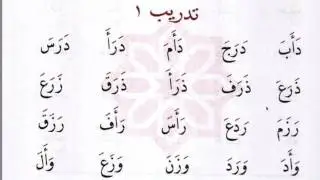 تدريب ١
دَأَبَ دَرَجَ دَأَمَ دَرَأَ دَرَسَ
ذَرَعَ ذَرَفَ ذَرَأَ ذَرَقَ زَرَعَ
رَزَمَ رَدَعَ رَأَسَ رَأَفَ رَزَقَ
وَأَدَ وَرَدَ وَزَنَ وَزَعَ وَأَلَ